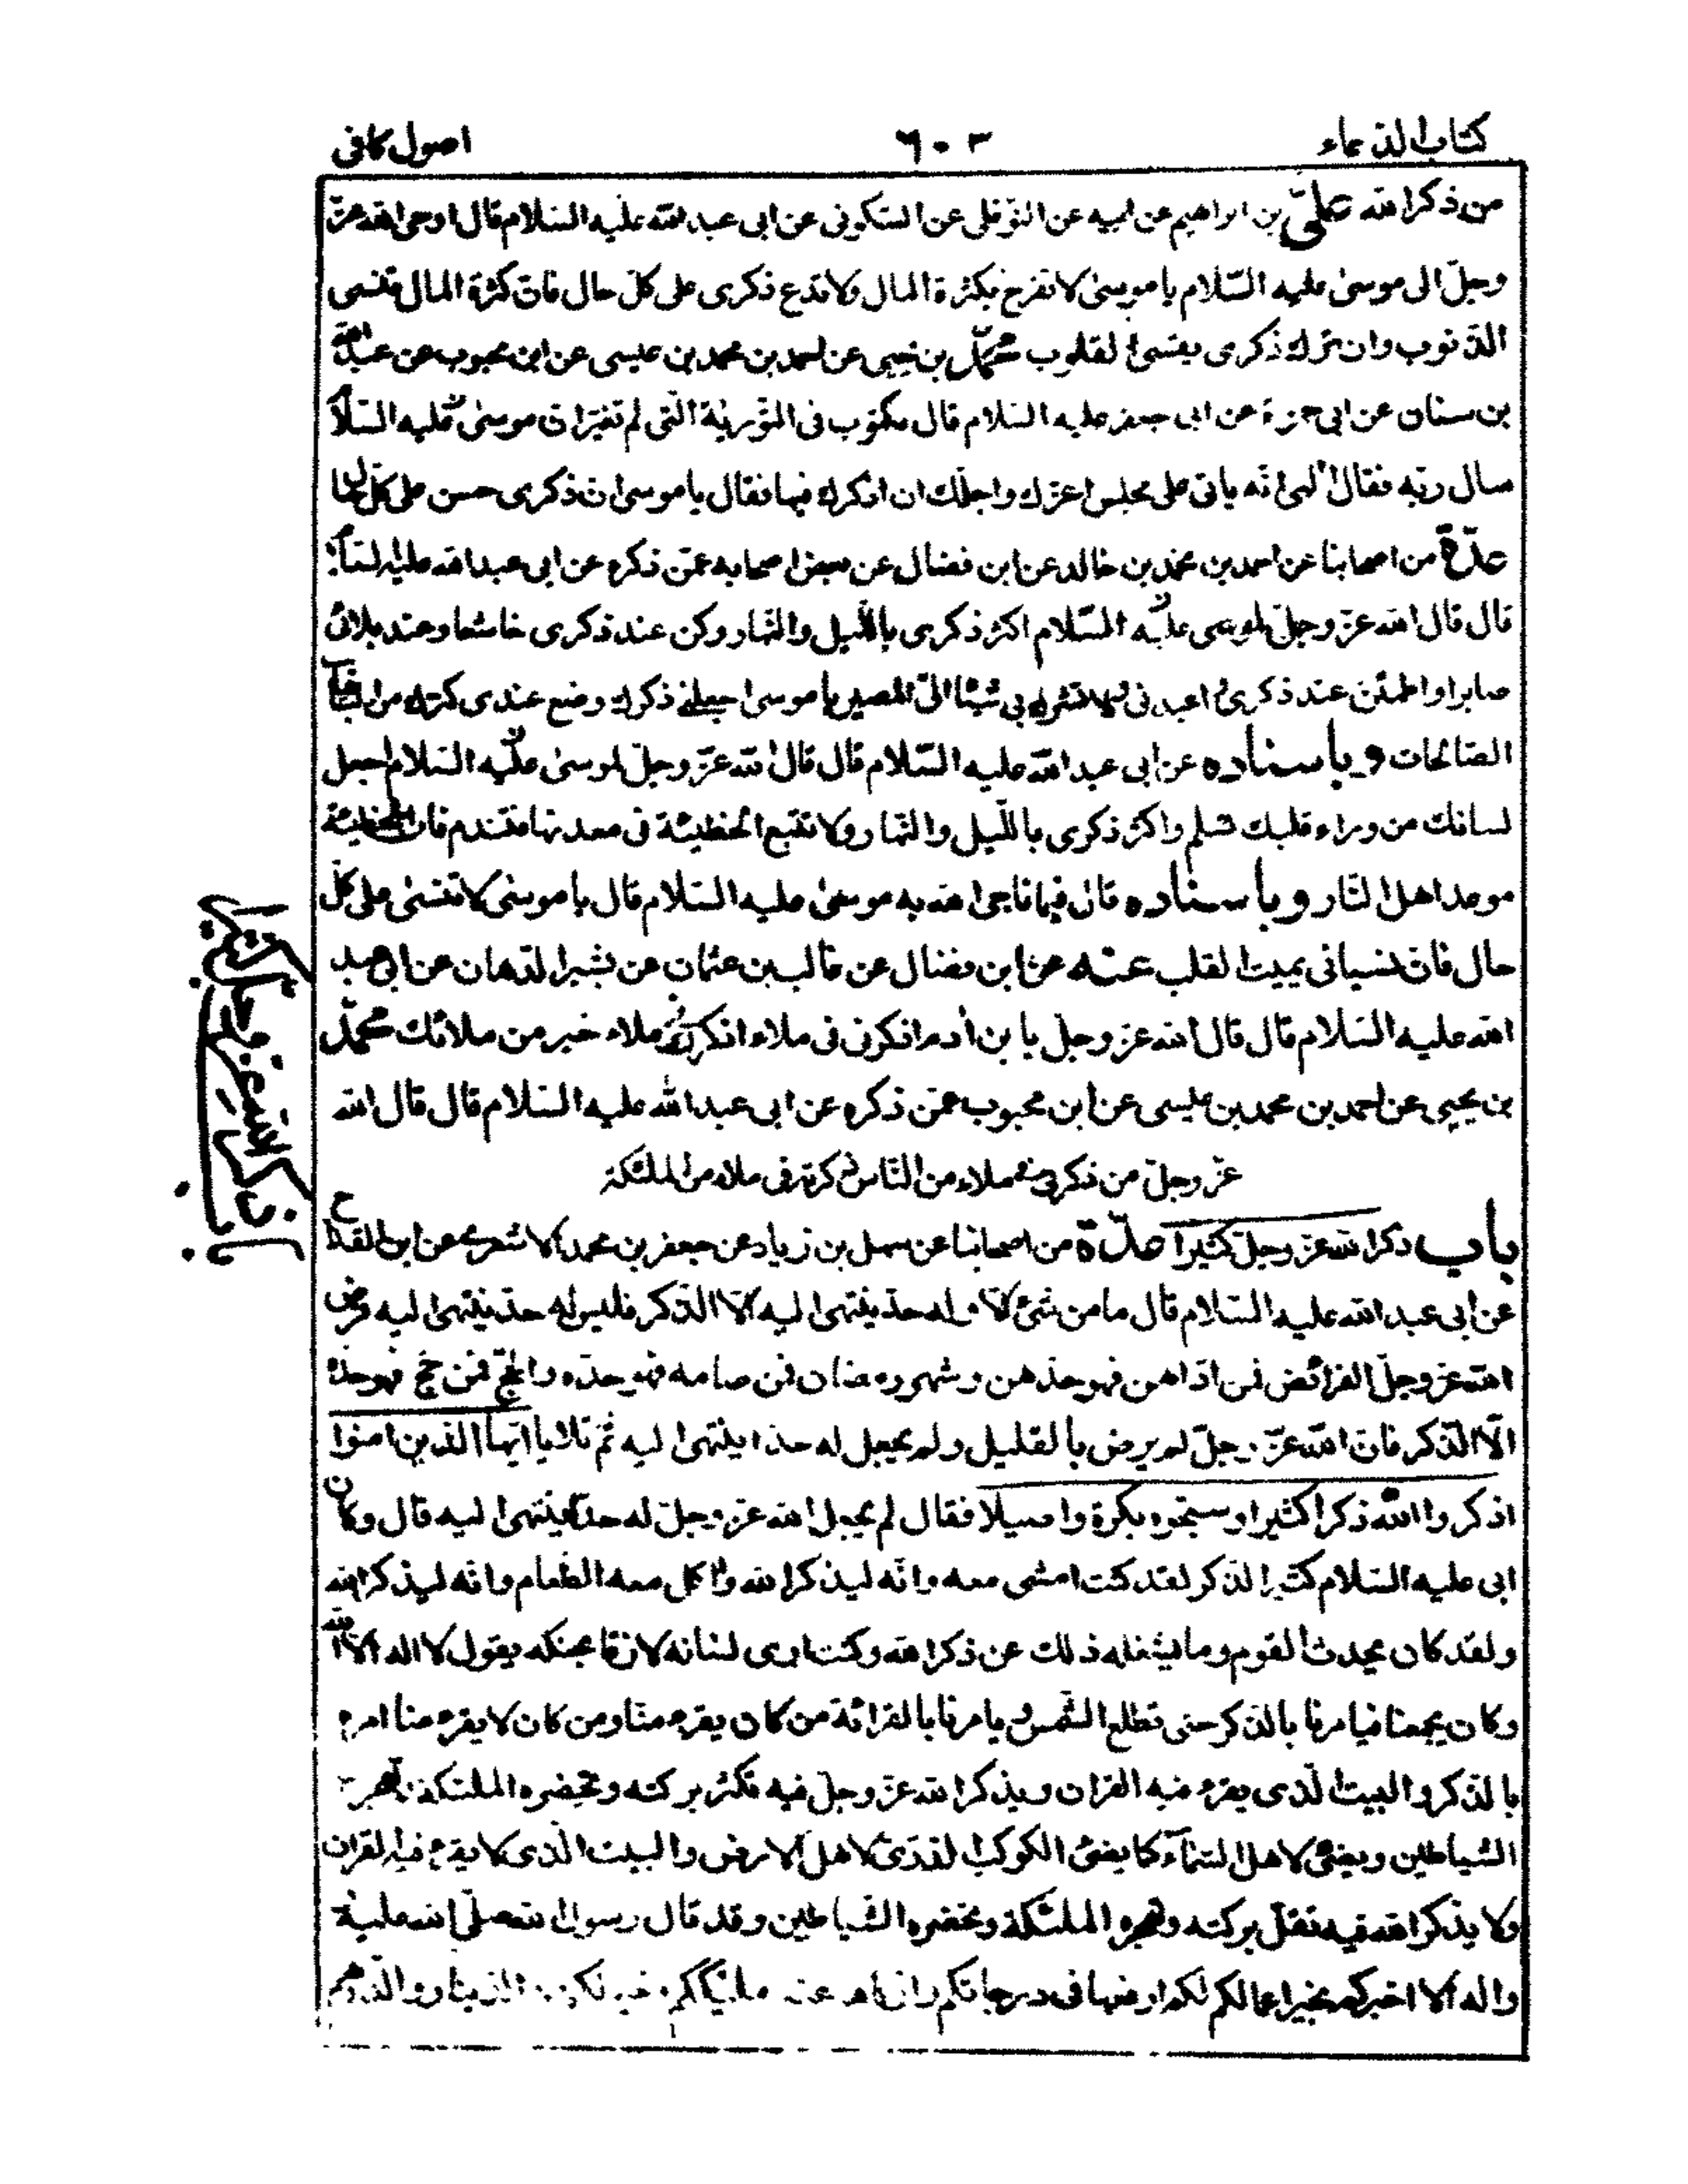 كتاب الدعاء
٦٠٣
اصول كافى
من ذكر الله علىّ بن ابراهيم عن ابيه عن النّوفلى عن السّكونى عن ابى عبد الله عليه السّلام قال اوحى الله عزّ
وجلّ الى موسىٰ عليه السّلام يا موسىٰ لا تفرح بكثرة المال ولا تدع ذكرى على كلّ حال فانّ كثرة المال تنسى
الذّنوب وان ترك ذكرى يقسى القلوب محمّد بن يحيى عن احمد بن محمد بن عيسى عن ابن محبوب عن عبد الله
بن سنان عن ابى حمزة عن ابى جعفر عليه السّلام قال مكتوب فى التّورية الّتى لم تغيّر انّ موسىٰ عليه السّلام
سال ربّه فقال الٰهى انّه ياتى على مجلس اعزّك واجلّك ان اذكرك فيها فقال يا موسى انّ ذكرى حسن على كلّ حال
عدّة من اصحابنا عن احمد بن محمد بن خالد عن ابن فضال عن بعض اصحابه عمّن ذكره عن ابى عبد الله عليه السّلام
قال قال الله عزّ وجلّ لموسى عليه السّلام اكثر ذكرى باللّيل والنّهار وكن عند ذكرى خاشعا وعند بلائى
صابرا واطمئن عند ذكرى واعبدنى ولا تشرك بى شيئا الىّ المصير يا موسى اجعلنى ذكرك وضع عندى كنزك من الباقيات
الصّالحات وباسناده عن ابى عبد الله عليه السّلام قال قال الله عزّ وجلّ لموسىٰ عليه السّلام اجعل
لسانك من وراء قلبك تسلم واكثر ذكرى باللّيل والنّهار ولا تتبع الخطيئة فى معدنها فتندم فانّ الخطيئة
موعد اهل النّار وباسناده قال فيما ناجى الله به موسىٰ عليه السّلام قال يا موسىٰ لا تنسنى على كلّ
حال فانّ نسيانى يميت القلب عنه عن ابن فضال عن غالب بن عثمان عن بشير الدّهان عن ابى عبد
الله عليه السّلام قال قال الله عزّ وجلّ يا بن اٰدم اذكرنى فى ملاء اذكرك فى ملاء خير من ملائك محمّد
بن يحيى عن احمد بن محمد بن عيسى عن ابن محبوب عمّن ذكره عن ابى عبد الله عليه السّلام قال قال الله
عزّ وجلّ من ذكرنى فى ملاء من النّاس ذكرته فى ملاء من الملئكة
باب ذكر الله عزّ وجلّ كثيرا عدّة من اصحابنا عن سهل بن زياد عن جعفر بن محمد الاشعرى عن ابن القداح
عن ابى عبد الله عليه السّلام قال ما من شئ الّا وله حدّ ينتهى اليه الّا الذّكر فليس له حدّ ينتهى اليه فرض
الله عزّ وجلّ الفرائض فمن ادّاهن فهو حدّهن وشهر رمضان فمن صامه فهو حدّه والحجّ فمن حجّ فهو حدّه
الّا الذّكر فانّ الله عزّ وجلّ لم يرض بالقليل ولم يجعل له حدّا ينتهى اليه ثمّ تلا يا ايّها الذين امنوا
اذكروا الله ذكرا كثيرا وسبّحوه بكرة واصيلا فقال لم يجعل الله عزّ وجلّ له حدّا ينتهى اليه قال وكان
ابى عليه السّلام كثير الذّكر لقد كنت امشى معه وانّه ليذكر الله واٰكل معه الطّعام وانّه ليذكر الله
ولقد كان يحدث القوم وما يشغله ذلك عن ذكر الله وكنت ارى لسانه لازقا بحنكه يقول لا اله الّا الله
وكان يجمعنا فيامرنا بالذّكر حتى تطلع الشّمس ويامرنا بالقرائة من كان يقرء منّا ومن كان لا يقرء منا امره
بالذّكر والبيت الّذى يقرء فيه القران ويذكر الله عزّ وجلّ فيه تكثر بركته وتحضره الملئكة وتهجره
الشّياطين ويضئ لاهل السّماء كما يضئ الكوكب الدّرّى لاهل الارض والبيت الّذى لا يقرء فيه القران
ولا يذكر الله فيه تقلّ بركته وتهجره الملئكة وتحضره الشّياطين وقد قال رسول الله صلّى الله عليه
واله الا اخبركم بخير اعمالكم لكم ارفعها فى درجاتكم وازكاها عند مليككم وخير لكم من الدّينار والدّرهم
باب ذكر الله عزّ وجل كثيرا